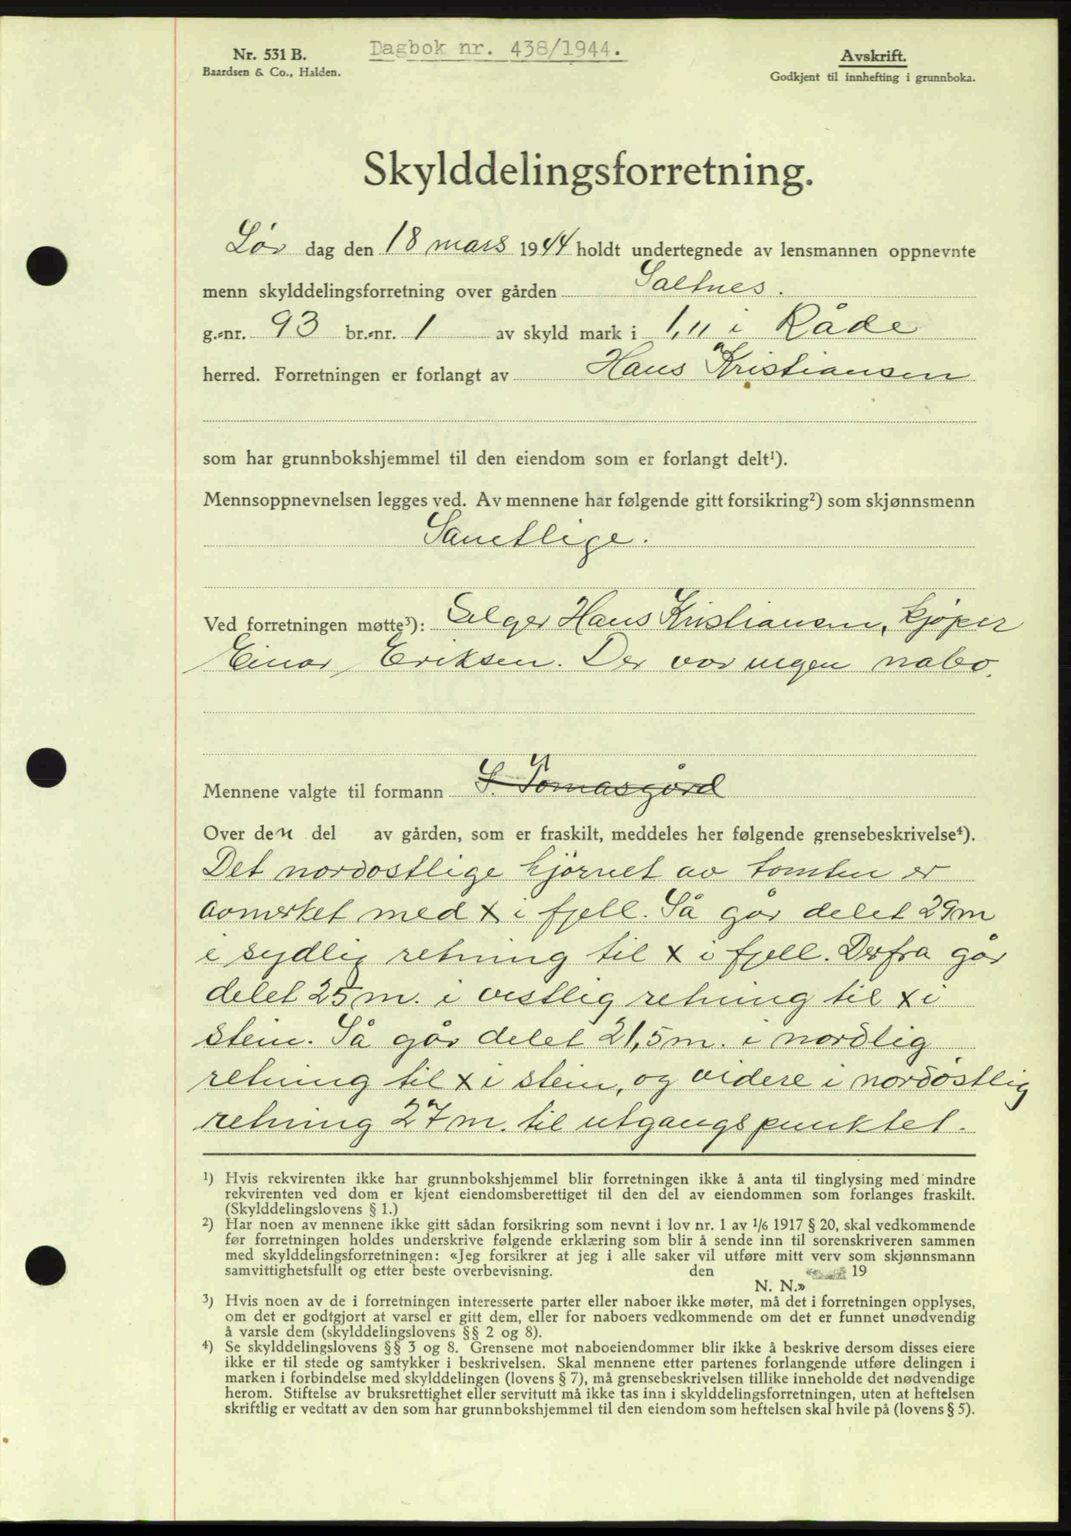 Dagbok nr. 438/1944.
Nr. 531 B.
Baardsen & Co., Halden.
Avskrift.
Godkjent til innhefting i grunnboka.
Skylddelingsforretning.
Lør dag den 18 mars 1944 holdt undertegnede av lensmannen oppnevnte
menn skylddelingsforretning over gården Saltnes.
g.-nr. 93 br.-nr. 1 av skyld mark i 1,11 i Råde
herred. Forretningen er forlangt av Hans Kristiansen
som har grunnbokshjemmel til den eiendom som er forlangt delt¹).
Mennsoppnevnelsen legges ved. Av mennene har følgende gitt forsikring²) som skjønnsmenn
Samtlige.
Ved forretningen møtte³): Selger Hans Kristiansen, kjøper
Einar Eriksen. Der var ingen nabo.
Mennene valgte til formann S. Tomasgård
Over den del av gården, som er fraskilt, meddeles her følgende grensebeskrivelse⁴).
Det nordostlige hjørnet av tomten er
avmerket med x i fjell. Så går delet 29 m
i sydlig retning til x i fjell. Derfra går
delet 25 m. i vestlig retning til x i
stein. Så går delet 21,5 m. i nordlig
retning til x i stein, og videre i nordøstlig
retning 27 m. til utgangspunktet.
¹) Hvis rekvirenten ikke har grunnbokshjemmel blir forretningen ikke å anta til tinglysing med mindre
rekvirenten ved dom er kjent eiendomsberettiget til den del av eiendommen som forlanges fraskilt.
(Skylddelingslovens § 1.)
²) Har noen av mennene ikke gitt sådan forsikring som nevnt i lov nr. 1 av 1/6 1917 § 20, skal vedkommende
før forretningen holdes underskrive følgende erklæring som blir å sende inn til sorenskriveren sammen
med skylddelingsforretningen: «Jeg forsikrer at jeg i alle saker vil utføre mitt verv som skjønnsmann
samvittighetsfullt og etter beste overbevisning. den 19
N. N.»
³) Hvis noen av de i forretningen interesserte parter eller naboer ikke møter, må det i forretningen opplyses,
om det er godtgjort at varsel er gitt dem, eller for naboers vedkommende om det er funnet unødvendig
å varsle dem (skylddelingslovens §§ 2 og 8).
⁴) Se skylddelingslovens §§ 3 og 8. Grensene mot naboeiendommer blir ikke å beskrive dersom disses eiere
ikke er til stede og samtykker i beskrivelsen. Skal mennene etter partenes forlangende utføre delingen i
marken i forbindelse med skylddelingen (lovens § 7), må grensebeskrivelsen tillike inneholde det nødvendige
herom. Stiftelse av bruksrettighet eller servitutt må ikke tas inn i skylddelingsforretningen, uten at heftelsen
skriftlig er vedtatt av den som har grunnbokshjemmel til den eiendom som heftelsen skal hvile på (lovens § 5).